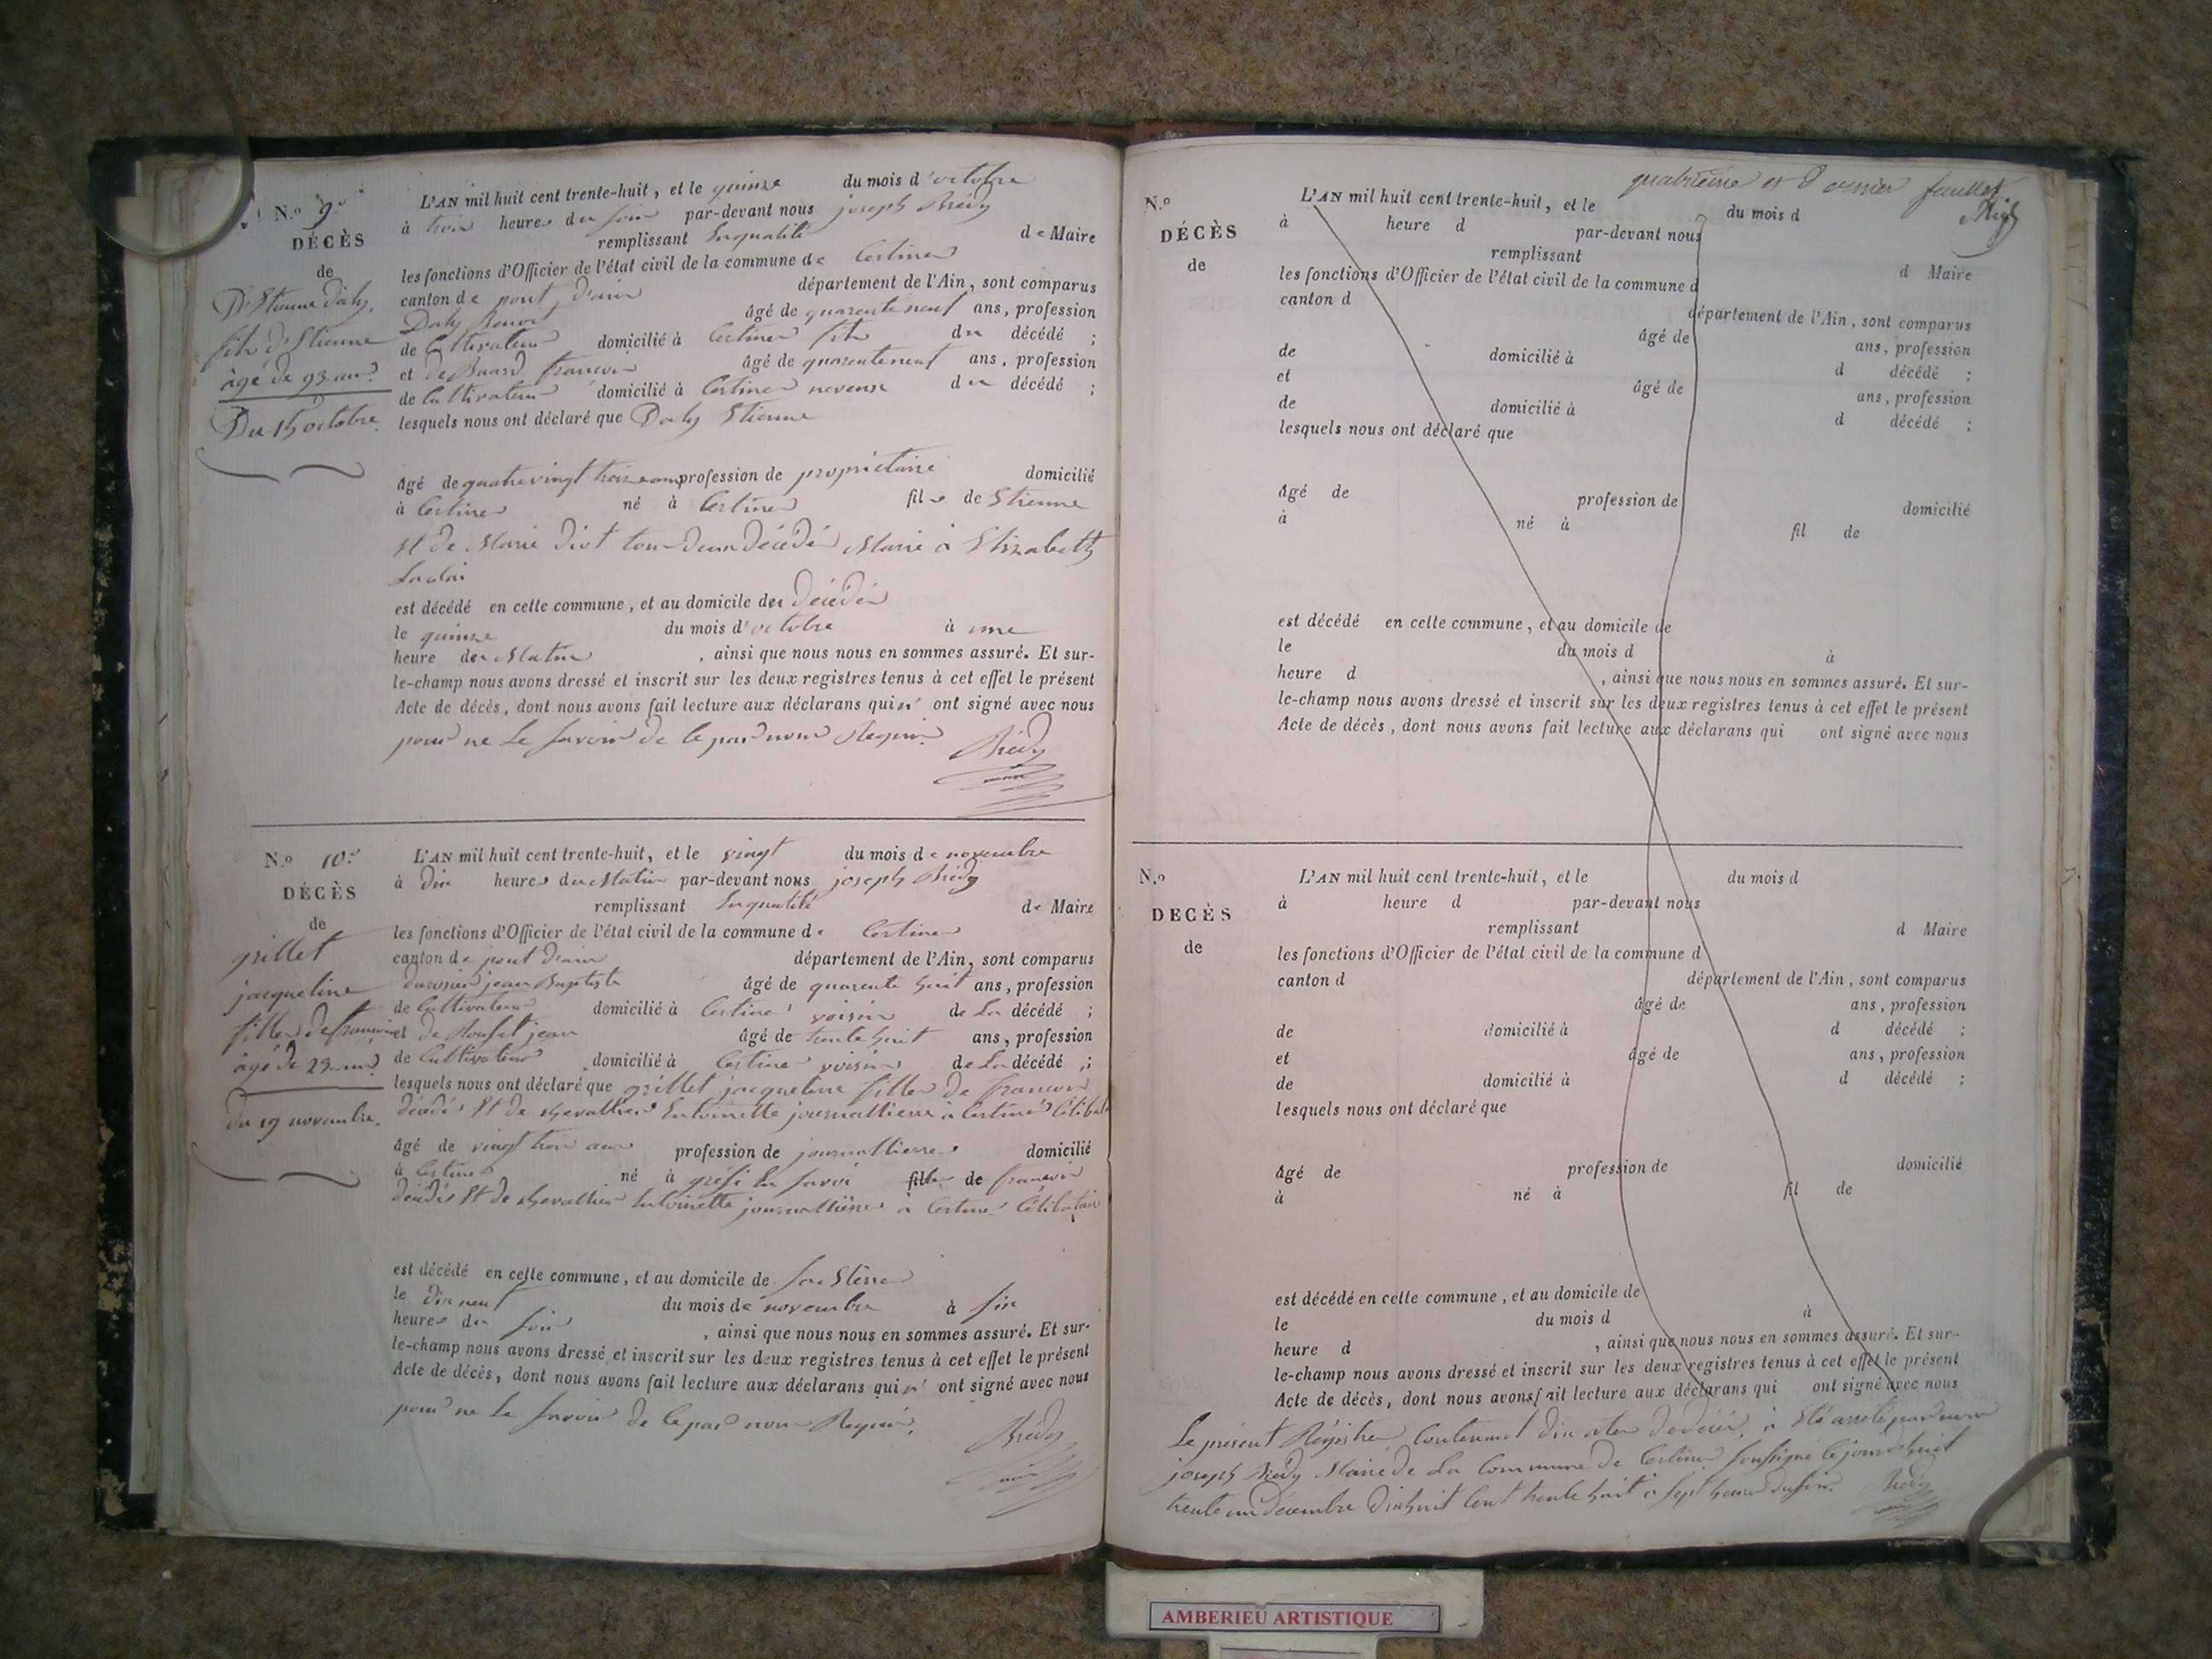 N.º 9.e
DÉCÈS
de
Etienne Daly,
fils d'Etienne
âgé de 93 ans.
Du 15 octobre.
L'AN mil huit cent trente-huit, et le quinze du mois d'octobre
à trois heures du soir par-devant nous joseph
remplissant En qualité de Maire
les fonctions d'Officier de l'état civil de la commune de Certines
canton de pont d'ain département de l'Ain, sont comparus
Daly Benoit âgé de quarente neuf ans, profession
de Cultivateur domicilié à Certines fils du décédé ;
et de Buard francois âgé de quarente neuf ans, profession
de Cultivateur domicilié à Certines neveux du décédé ;
lesquels nous ont déclaré que Daly Etienne
âgé de quatre vingt treize ans profession de propriétaire domicilié
à Certines né à Certines fils de Etienne
Et de Marie Diot tous deux décédés Marié à Elizabeth
est décédé en cette commune, et au domicile des décédés
le quinze du mois d'octobre à une
heure du Matin , ainsi que nous nous en sommes assuré. Et sur-
le-champ nous avons dressé et inscrit sur les deux registres tenus à cet effet le présent
Acte de décès, dont nous avons fait lecture aux déclarans qui n' ont signé avec nous
pour ne Le Savoir de ce par nous Requis.
N.º 10.e
DÉCÈS
de
grillet
jacqueline
fille de francois
âgé de 23 ans
du 19 novembre.
L'AN mil huit cent trente-huit, et le vingt du mois de novembre
à Dix heures du Matin par-devant nous joseph
remplissant En qualité de Maire
les fonctions d'Officier de l'état civil de la commune de Certines
canton de pont d'ain département de l'Ain, sont comparus
jean Baptiste âgé de quarente huit ans, profession
de Cultivateur domicilié à Certines voisin de La décédé ;
et de jean âgé de trente huit ans, profession
de Cultivateur domicilié à Certines voisin de La décédé ;
lesquels nous ont déclaré que grillet jacqueline fille de francois
décédé Et de chevallier Entoinette journalliere à Certines Célibat
âgé de vingt trois ans profession de journalliere domicilié
à Certines né à grési En Savoi fille de francois
décédé Et de chevallier Entoinette journallière à Certines Célibataire
est décédé en cette commune, et au domicile de
le dix neuf du mois de novembre à six
heures du soir , ainsi que nous nous en sommes assuré. Et sur-
le-champ nous avons dressé et inscrit sur les deux registres tenus à cet effet le présent
Acte de décès, dont nous avons fait lecture aux déclarans qui n' ont signé avec nous
pour ne Le Savoir de ce par nous Requis.
quatrième et Dernier feuillet
N.º
DÉCÈS
de
L'AN mil huit cent trente-huit, et le du mois d
à heure d par-devant nous
remplissant d Maire
les fonctions d'Officier de l'état civil de la commune d
canton d département de l'Ain, sont comparus
âgé de ans, profession
de domicilié à d décédé ;
et âgé de ans, profession
de domicilié à d décédé ;
lesquels nous ont déclaré que
âgé de profession de domicilié
à né à fil de
est décédé en cette commune, et au domicile de
le du mois d à
heure d , ainsi que nous nous en sommes assuré. Et sur-
le-champ nous avons dressé et inscrit sur les deux registres tenus à cet effet le présent
Acte de décès, dont nous avons fait lecture aux déclarans qui ont signé avec nous
N.º
DECÈS
de
L'AN mil huit cent trente-huit, et le du mois d
à heure d par-devant nous
remplissant d Maire
les fonctions d'Officier de l'état civil de la commune d
canton d département de l'Ain, sont comparus
âgé de ans, profession
de domicilié à d décédé ;
et âgé de ans, profession
de domicilié à d décédé ;
lesquels nous ont déclaré que
âgé de profession de domicilié
à né à fil de
est décédé en cette commune, et au domicile de
le du mois d à
heure d , ainsi que nous nous en sommes assuré. Et sur-
le-champ nous avons dressé et inscrit sur les deux registres tenus à cet effet le présent
Acte de décès, dont nous avons fait lecture aux déclarans qui ont signé avec nous
Le présent Régistre Contenant dix actes de décès, à Eté arrêté par nous
joseph Maire de La Commune de Certines soussigné Ce jourd'huit
trente un décembre Dixhuit Cent trente huit à sept heures du soir.
AMBERIEU ARTISTIQUE